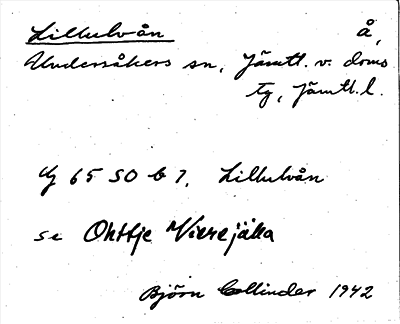 Lillulvån å,
Undersåkers sn, Jämtl. v. doms
tg, Jämtl. l.
Uj 65 SO b 7, Lillulvån
se Ohttje Vierejåka
Björn Collinder 1942